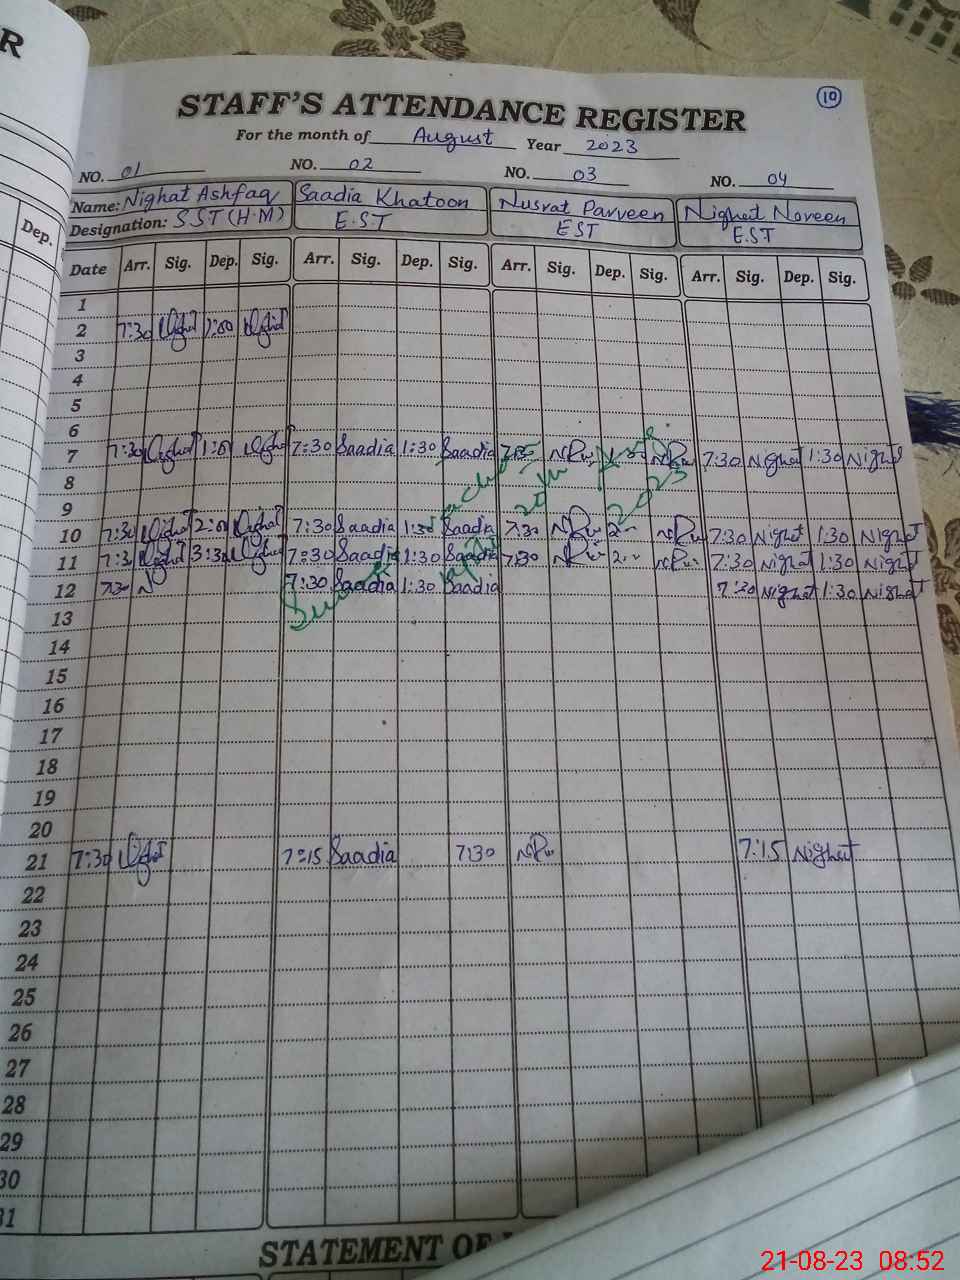 R
10
STAFF'S ATTENDANCE REGISTER
For the month of August Year 2023
NO. 01 NO. 02 NO. 03 NO. 04
Name: Nighat Ashfaq Saadia Khatoon Nusrat Parveen Nighat Noreen
Designation: SST (H.M) E.S.T EST E.ST
Dep.
Date Arr. Sig. Dep. Sig. Arr. Sig. Dep. Sig. Arr. Sig. Dep. Sig. Arr. Sig. Dep. Sig.
1
2 7:30 Nighat 1:00 Nighat
3
4
5
6
7 7:30 Nighat Nighat 7:30 Saadia 1:30 Saadia 7:30 Nighat 1:30 Nighat
8
9
10 7:30 Nighat 2:00 Nighat 7:30 Saadia 1:30 Saadia 7:30 7:30 Nighat 1:30 Nighat
11 7:30 Nighat 3:30 Nighat 7:30 Saadia 1:30 Saadia 7:30 7:30 Nighat 1:30 Nighat
12 7:30 N 7:30 Saadia 1:30 Saadia 7:30 Nighat 1:30 Nighat
2023
13
14
15
16
17
18
19
20
21 7:30 Nighat 7:15 Saadia 7:30 7:15 Nighat
22
23
24
25
26
27
28
29
30
31
STATEMENT OF
21-08-23 08:52